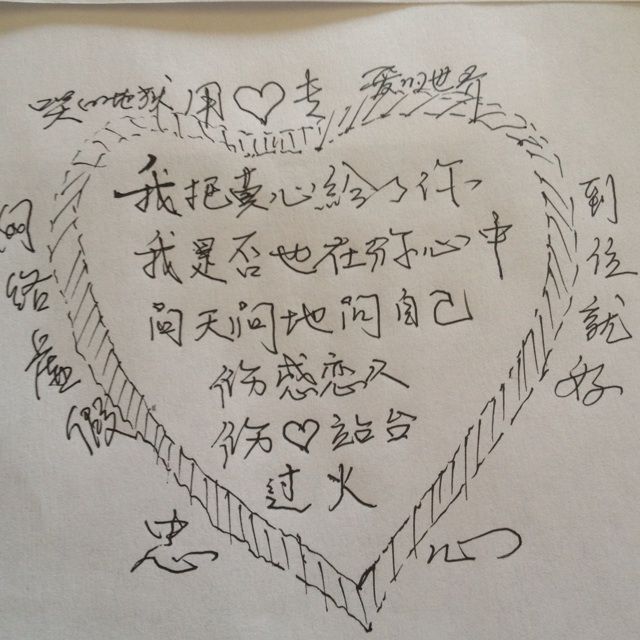 哭的地狱 用♡去 爱的世界
我把真心給了你
我是否也在你心中
问天问地问自己
伤感恋人
伤♡站台
过火
网络虚假
到位就好
忠心